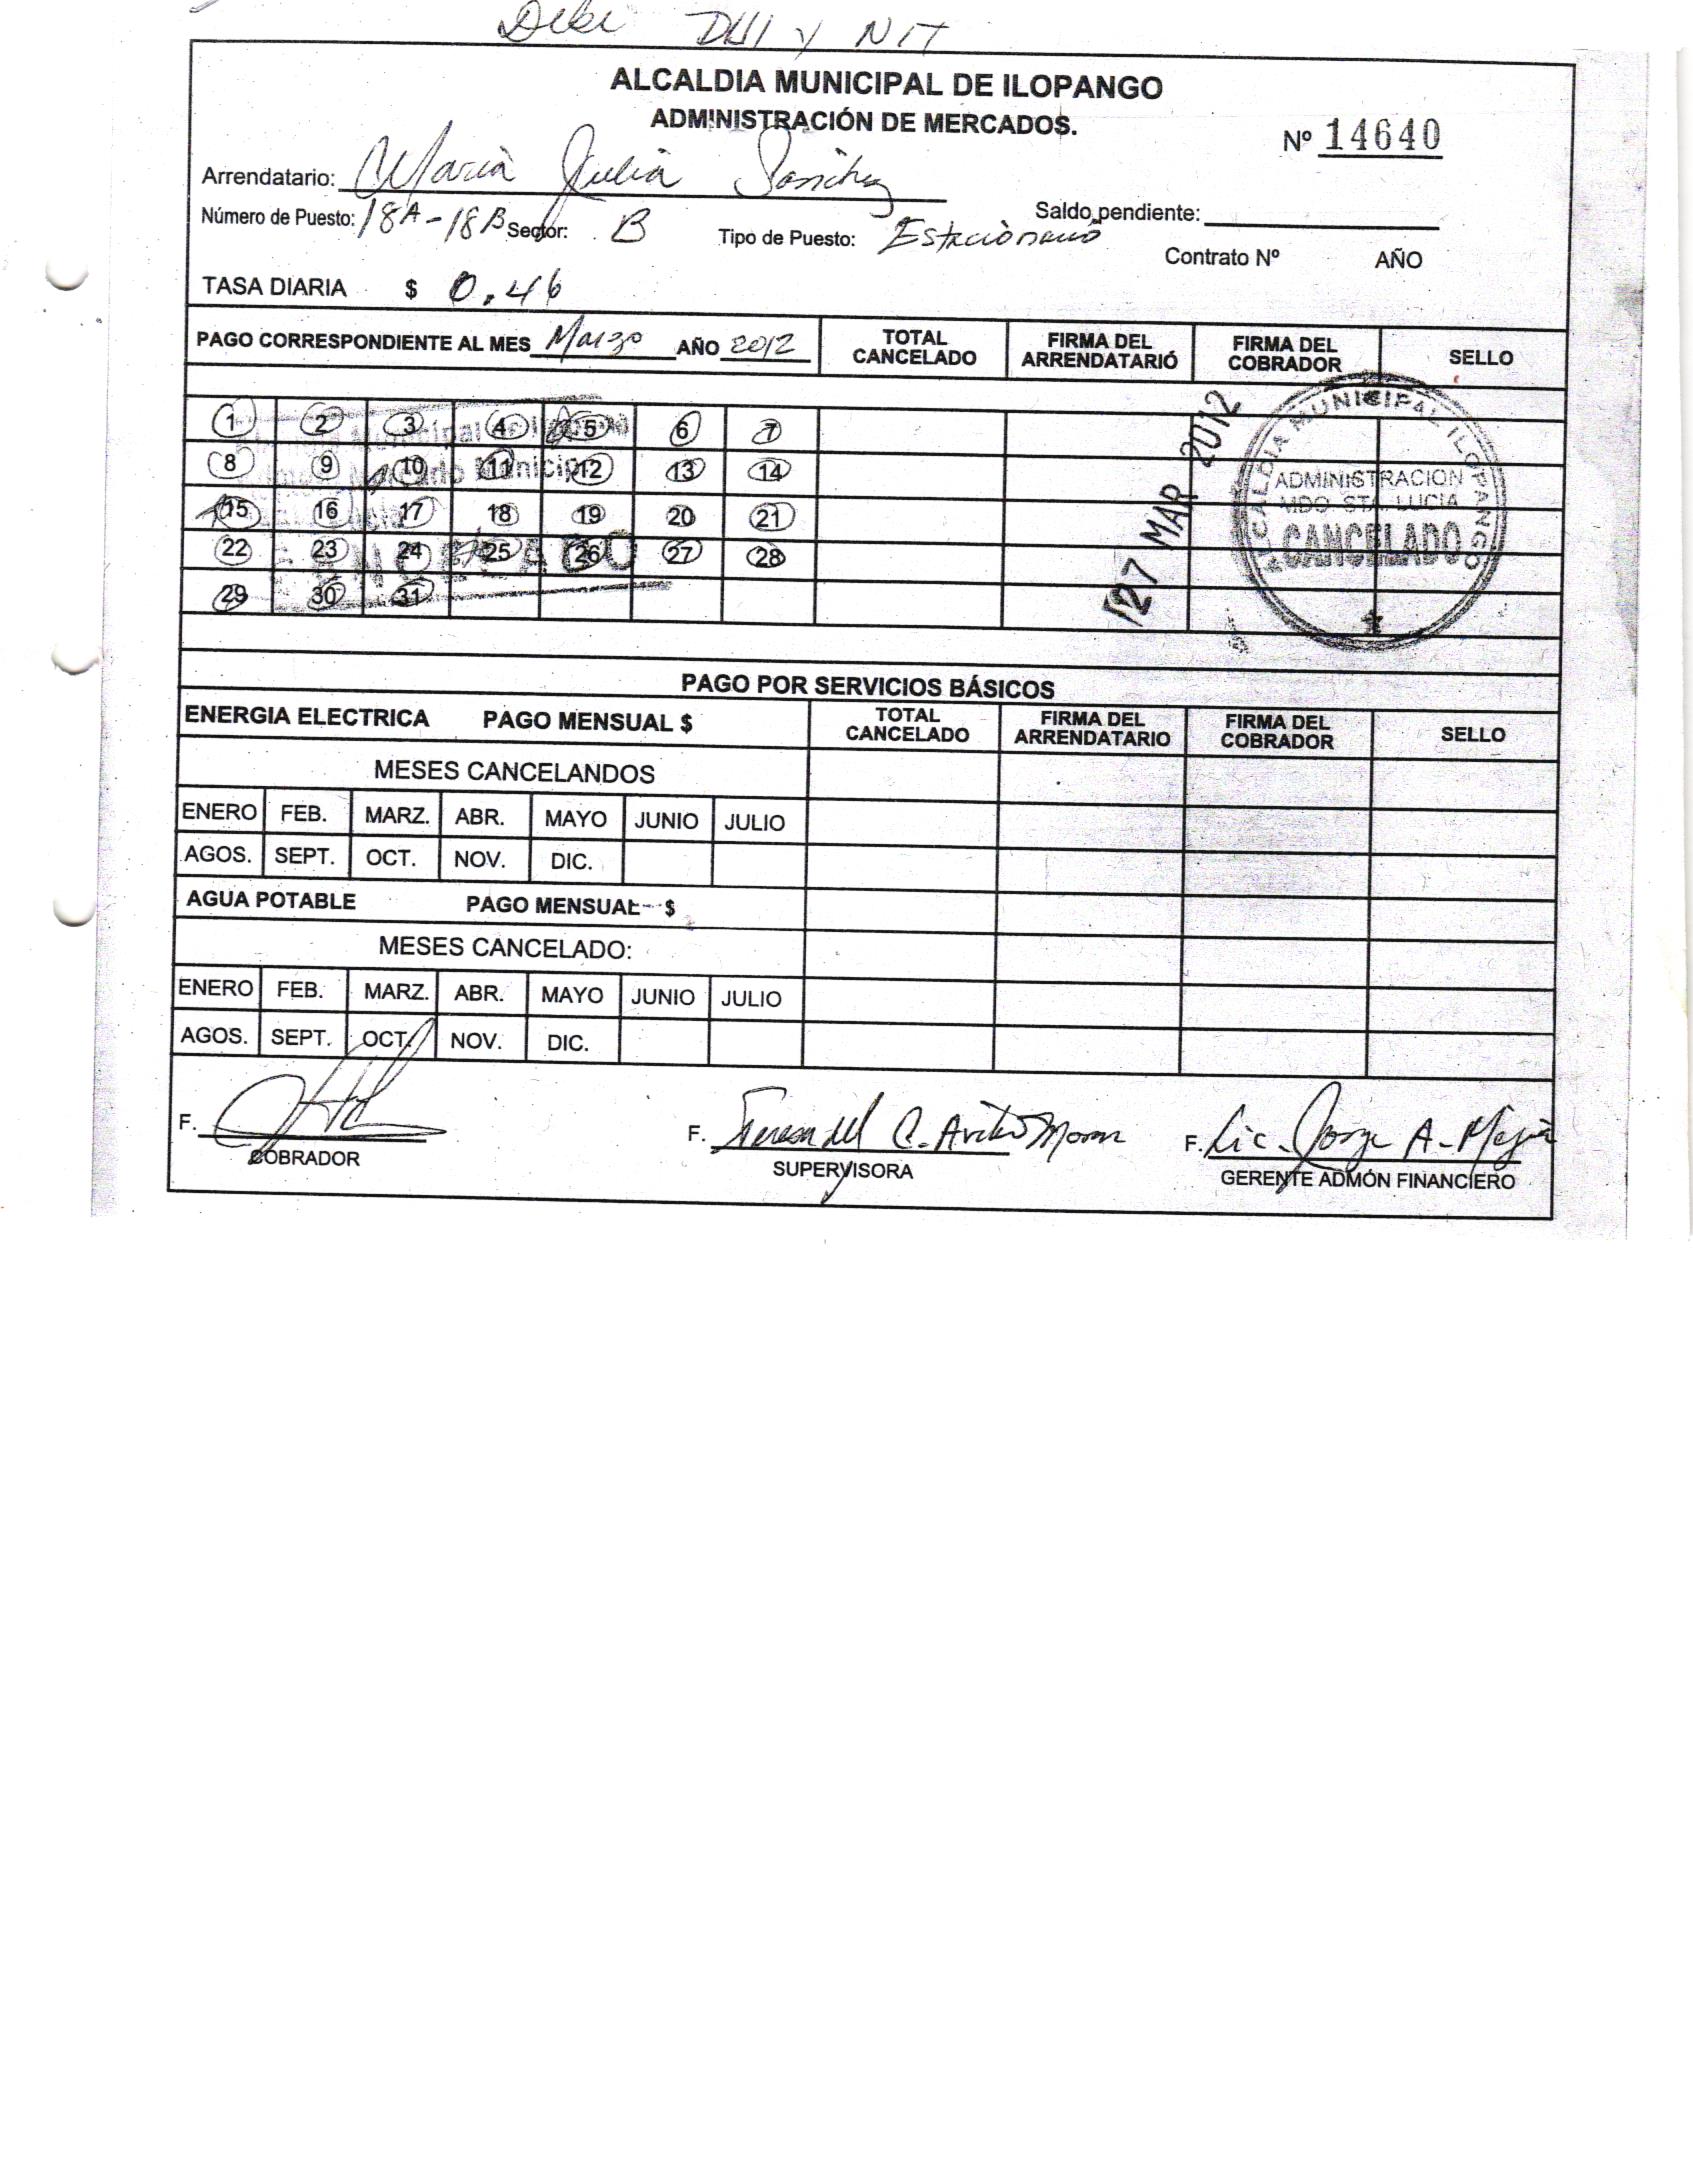 Debe DUI y NIT
ALCALDIA MUNICIPAL DE ILOPANGO
ADMINISTRACIÓN DE MERCADOS.
Nº 14640
Arrendatario: Maria Julia Sanchez
Saldo pendiente:
Número de Puesto: 18A-18B Sector: B Tipo de Puesto: Estacionario
Contrato Nº AÑO
TASA DIARIA $ 0.46
PAGO CORRESPONDIENTE AL MES Marzo AÑO 2012 TOTAL CANCELADO FIRMA DEL ARRENDATARIÓ FIRMA DEL COBRADOR SELLO
1 2 3 4 5 6 7
8 9 10 11 12 13 14
15 16 17 18 19 20 21
22 23 24 25 26 27 28
29 30 31
27 MAR 2012
ALCALDIA MUNICIPAL ILOPANGO
ADMINISTRACION
MDO STA. LUCIA
CANCELADO
PAGO POR SERVICIOS BÁSICOS
ENERGIA ELECTRICA PAGO MENSUAL $ TOTAL CANCELADO FIRMA DEL ARRENDATARIO FIRMA DEL COBRADOR SELLO
MESES CANCELANDOS
ENERO FEB. MARZ. ABR. MAYO JUNIO JULIO
AGOS. SEPT. OCT. NOV. DIC.
AGUA POTABLE PAGO MENSUAL $
MESES CANCELADO:
ENERO FEB. MARZ. ABR. MAYO JUNIO JULIO
AGOS. SEPT. OCT. NOV. DIC.
F. F. Teresa del C. F. Lic. Jorge A. Mejia
COBRADOR SUPERVISORA GERENTE ADMÓN FINANCIERO